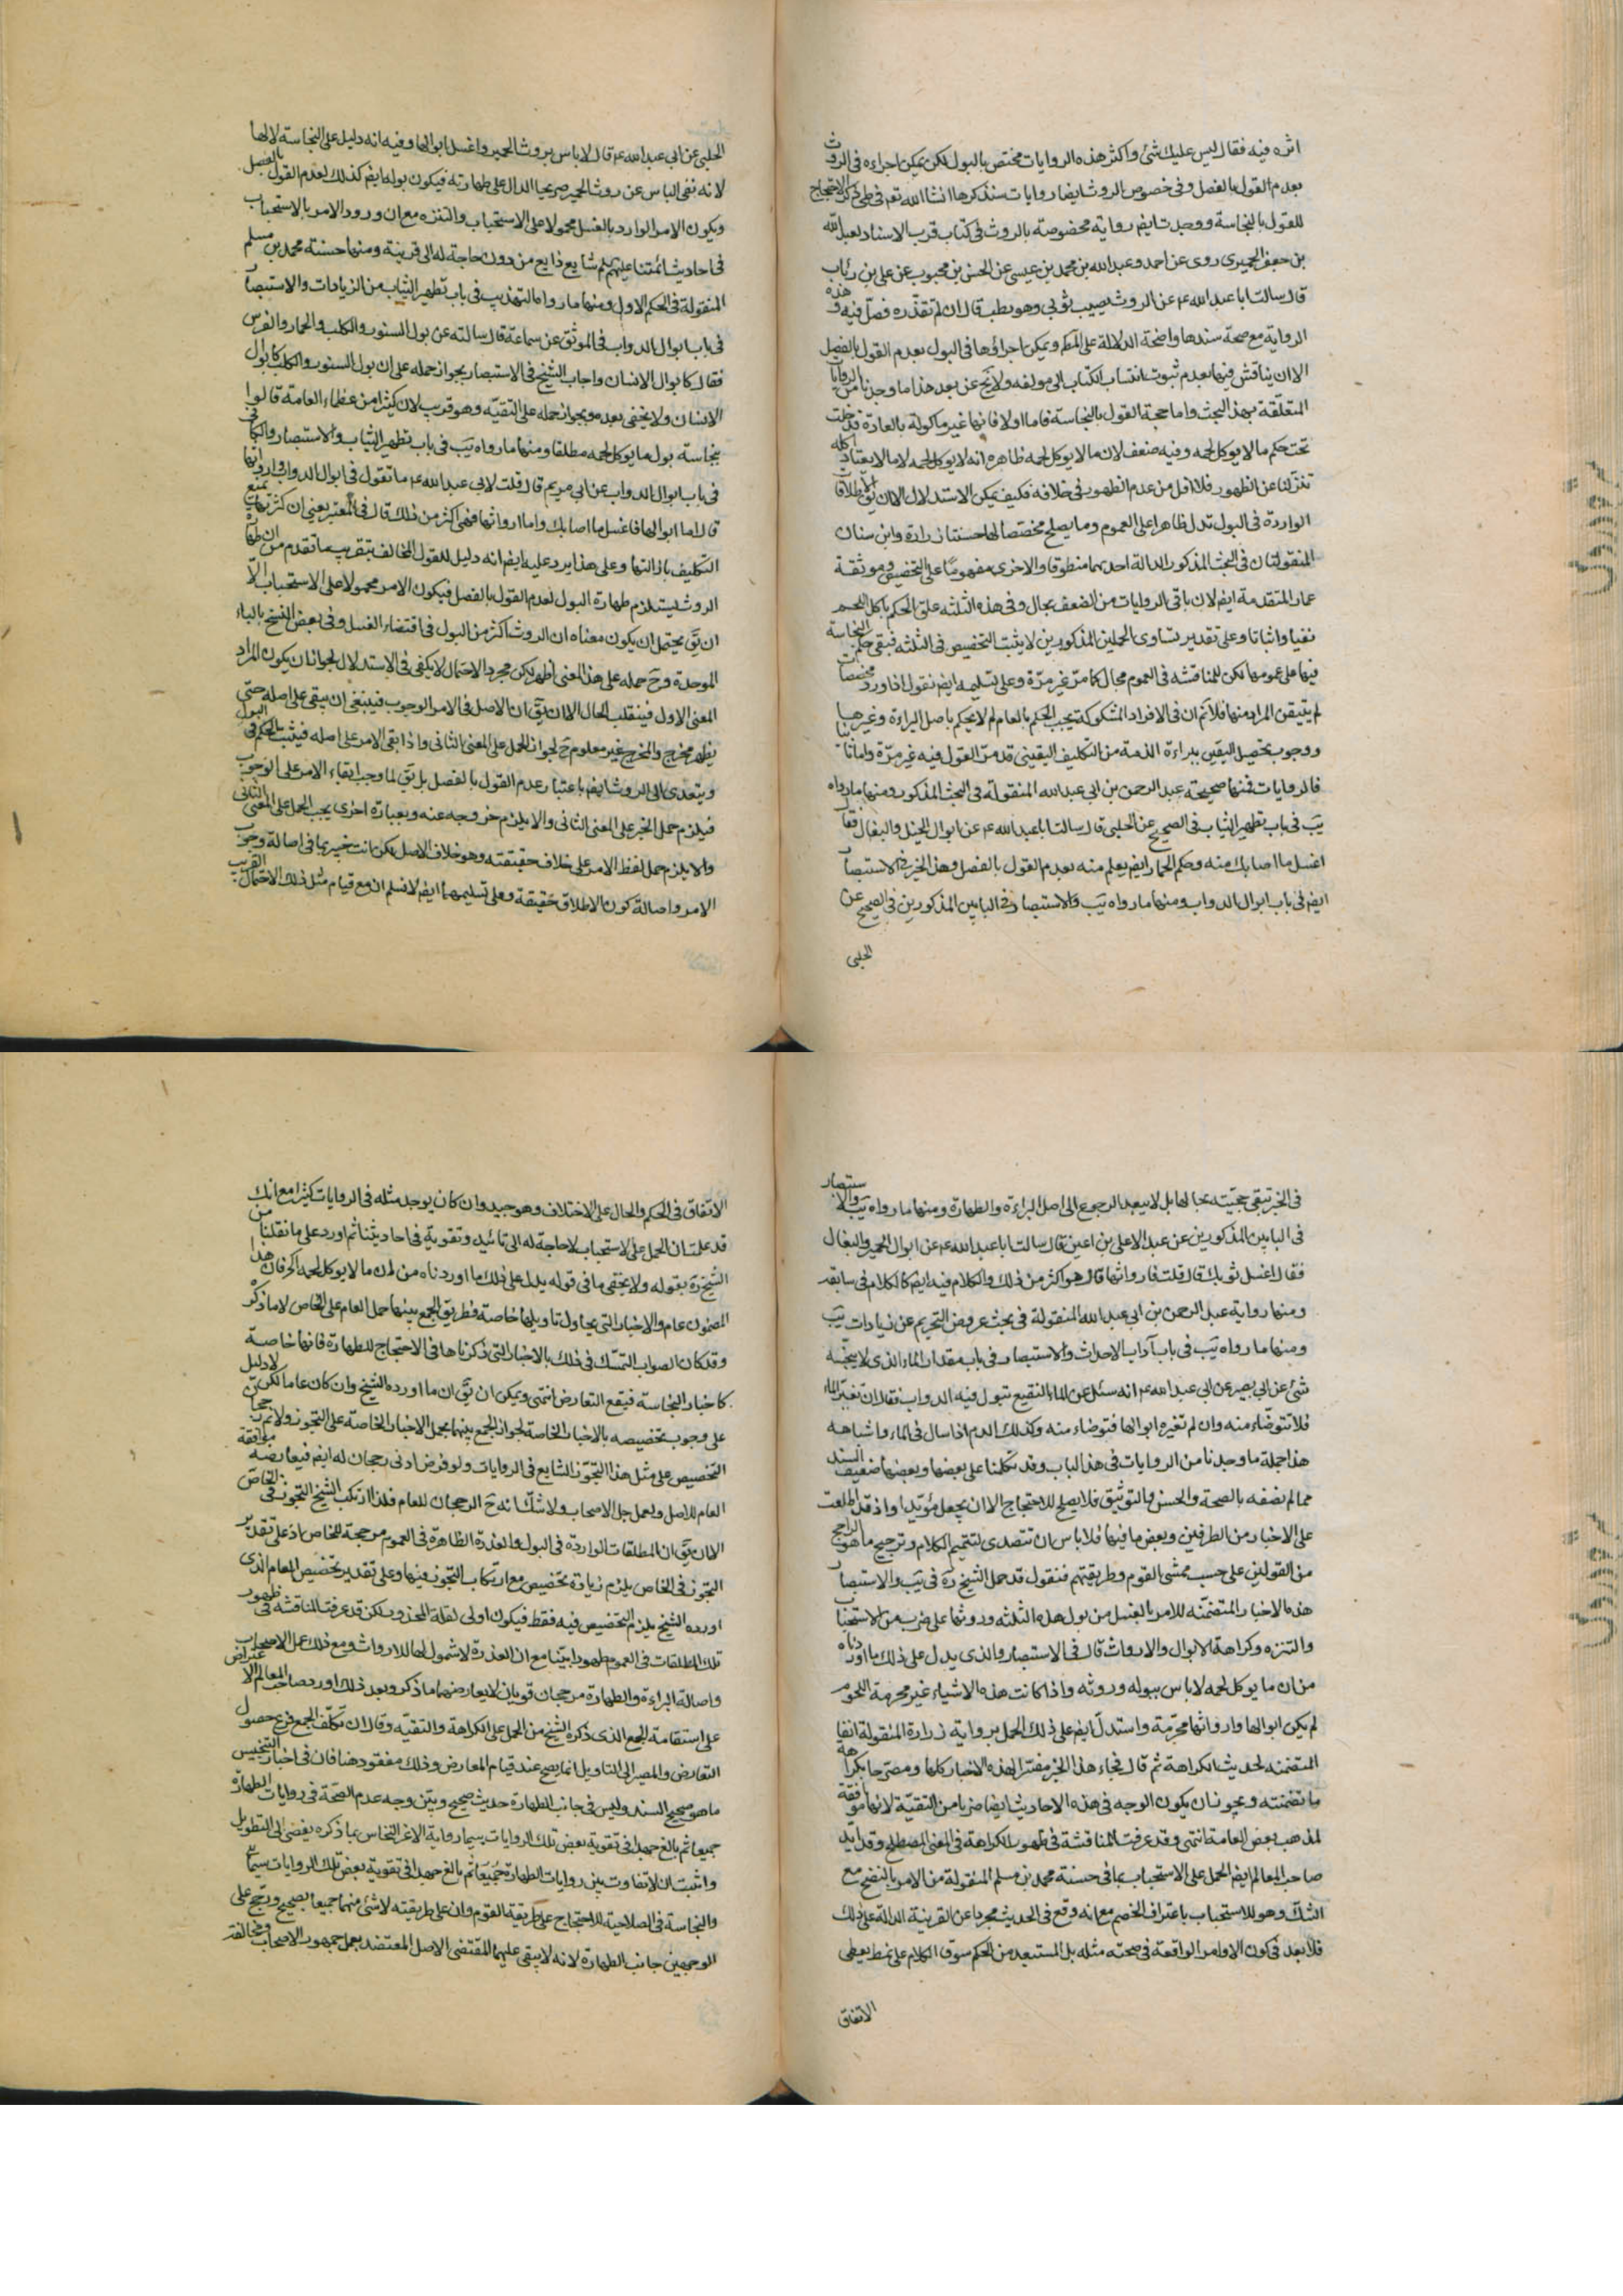 اثره فيه فقال ليس عليك شئ واكثر هذه الروايات مختص بالبول لكن يمكن اجراءه فى الروث
بعدم القول بالفصل وفى خصوص الروث ايضا روايات سنذكرها انشا الله تعم فى طى ذكر الاحتجاج
للقول بالنجاسة ووجدت ايضم رواية مخصوصة بالروث فى كتاب قرب الاسناد لعبد الله
بن جعفر الحميرى روى عن احمد وعبد الله بن محمد بن عيسى عن الحسن بن محبوب عن على بن رئاب
قال سالت ابا عبد الله ع عن الروث يصيب ثوبى وهو رطب قال ان لم تقذره فصل فيه وهذه
الرواية مع صحة سندها واضحة الدلالة على المطم ويمكن اجراؤها فى البول بعدم القول بالفصل
الا ان يناقش فيها بعدم ثبوت انتساب الكتاب الى مولفه ولا يخ عن بعد هذا ما وجدنا من الروايات
المتعلقة بهذ البحث واما حجة القول بالنجاسة فاما اولا فانها غير ماكولة بالعادة فدخلت
تحت حكم ما لا يوكل لحمه وفيه ضعف لان ما لا يوكل لحمه ظاهره انه لا يوكل لحمه لا ما لا يعتاد اكله
تنزلنا عن الظهور فلا اقل من عدم الظهور فى خلافه فكيف يمكن الاستدلال الا ان يق الاطلاقات
الواردة فى البول تدل ظاهرا على العموم وما يصلح مخصصا لها حسنتا زرارة وابن سنان
المنقولتان فى البحث المذكور الدالة احديهما منطوقا والاخرى مفهوما على التخصيص وموثقة
عمار المتقدمة ايضم لان باقى الروايات من الضعف بحال وفى هذه الثلثه علق الحكم باكل اللحم
نفيا واثباتا وعلى تقدير تساوى المحملين المذكورين لا يثبت التخصيص فى الثلثه فبقى حكم النجاسة
فيها على عمومها لكن للمناقشه فى العموم مجال كما مر غير مرة وعلى تسليمه ايضم نقول اذا ورد مخصصات
لم يتيقن المراد منها فلا نم ان فى الافراد المشكوكة يجب الحكم بالعام لم لا يحكم باصل البراءة وغيرها
ووجوب تحصيل اليقين ببراءة الذمة من التكليف اليقينى قد مر القول فيه غير مرة واما ثانيا
فالروايات فمنها صحيحة عبد الرحمن بن ابى عبد الله المنقولة فى البحث المذكور ومنها ما رواه
يب فى باب تطهير الثياب فى الصحيح عن الحلبى قال سالت ابا عبد الله ع عن ابوال الخيل والبغال فقال
اغسل ما اصابك منه وحكم الحمار ايضم يعلم منه بعدم القول بالفصل وهذا الخبر فى الاستبصار
ايضم فى باب ابوال الدواب ومنها ما رواه يب والاستبصار فى البابين المذكورين فى الصحيح عن
الحلبى
الحلبى عن ابى عبد الله ع قال لا باس بروث الحمير واغسل ابوالها وفيه انه دليل على النجاسة لا لها
لانه نفى الباس عن روث الحمير صريحا الدال على طهارته فيكون بوله ايضم كذلك لعدم القول بالفصل
ويكون الامر الوارد بالغسل محمولا على الاستحباب والتنزه مع ان ورود الامر بالاستحباب
فى احاديث ائمتنا عليهم سلم شايع ذايع من دون حاجة له الى قرينة ومنها حسنة محمد بن مسلم
المنقولة فى الحكم الاول ومنها ما رواه التهذيب فى باب تطهير الثياب من الزيادات والاستبصار
فى باب ابوال الدواب فى الموثق عن سماعة قال سالته عن بول السنور والكلب والحمار والفرس
فقال كابوال الانسان واجاب الشيخ فى الاستبصار بجواز حمله على ان بول السنور والكلب كابوال
الانسان ولا يخفى بعده وبجواز حمله على التقيه وهو قريب لان كثيرا من عظماء العامة قالوا
بنجاسة بول ما يوكل لحمه مطلقا ومنها ما رواه يب فى باب تطهير الثياب والاستبصار والكافى
فى باب ابوال الدواب عن ابى مريم قال قلت لابى عبد الله ع ما تقول فى ابوال الدواب وارواثها
قال اما ابوالها فاغسل ما اصابك واما ارواثها فهى اكثر من ذلك قال فى المعتبر يعنى ان كثرتها تمنع
التكليف بازالتها وعلى هذا يرد عليه ايضم انه دليل للقول المخالف بتقريب ما تقدم من ان طهارة
الروث يستلزم طهارة البول لعدم القول بالفصل فيكون الامر محمولا على الاستحباب الا
ان يق يحتمل ان يكون معناه ان الروث اكثر من البول فى اقتضاء الغسل وفى بعض النسخ بالباء
الموحدة وح حمله على هذا المعنى اظهر لكن مجرد الاحتمال لا يكفى فى الاستدلال لجواز ان يكون المراد
المعنى الاول فينقلب الحال الا ان يق ان الاصل فى الامر الوجوب فينبغى ان يبقى على اصله حتى
يظهر مخرج والمخرج غير معلوم ح لجواز الحمل على المعنى الثانى واذا بقى الامر على اصله فيثبت الحكم فى البول
ويتعدى الى الروث ايضم باعتبار عدم القول بالفصل بل يق لما وجب ابقاء الامر على الوجوب
فيلزم حمل الخبر على المعنى الثانى والا يلزم خروجه عنه وبعبارة اخرى يجب الحمل على المعنى الثانى
والا يلزم حمل لفظ الامر على خلاف حقيقته وهو خلاف الاصل لكن انت خبير بما فى اصالة وجوب
الامر واصالة كون الاطلاق حقيقة وعلى تسليمهما ايضم لا نسلم ان مع قيام مثل ذلك الاحتمال القريب
فى الخبر تبقى حجيته بحالها بل لا يبعد الرجوع الى اصل البراءة والطهارة ومنها ما رواه يب والاستبصار
فى البابين المذكورين عن عبد الاعلى بن اعين قال سالت ابا عبد الله ع عن ابوال الحمير والبغال
فقال اغسل ثوبك قال قلت فارواثها قال هو اكثر من ذلك والكلام فيه ايضم كالكلام فى سابقه
ومنها رواية عبد الرحمن بن ابى عبد الله المنقولة فى بحث عروض التحريم عن زيادات يب
ومنها ما رواه يب فى باب آداب الاحداث والاستبصار فى باب مقدار الماء الذى لا ينجسه
شئ عن ابى بصير عن ابى عبد الله ع انه سئل عن الماء النقيع تبول فيه الدواب فقال ان تغير الماء
فلا تتوضاء منه وان لم تغيره ابوالها فتوضاء منه وكذلك الدم اذا سال فى الماء واشباهه
هذا جملة ما وجدنا من الروايات فى هذا الباب وقد تكلمنا على بعضها وبعضها ضعيف السند
مما لم نصفه بالصحة والحسن والتوثيق فلا يصلح للاحتجاج الا ان يجعل مؤيدا واذ قد اطلعت
على الاخبار من الطرفين وبعض ما فيها فلا باس ان نتصدى لتتميم الكلام وترجيح ما هو الراجح
من القولين على حسب ممشى القوم وطريقتهم فنقول قد حمل الشيخ ره فى يب والاستبصار
هذه الاخبار المتضمنه للامر بالغسل من بول هذه الثلثه وروثها على ضرب من الاستحباب
والتنزه وكراهة الابوال والارواث قال فى الاستبصار والذى يدل على ذلك ما اوردناه
من ان ما يوكل لحمه لا باس ببوله وروثه واذا كانت هذه الاشياء غير محرمة اللحوم
لم يكن ابوالها وارواثها محرمة واستدل ايضم على ذلك الحمل برواية زرارة المنقولة انفا
المتضمنه لحديث الكراهة ثم قال فجاء هذا الخبر مفسرا لهذه الاخبار كلها ومصرحا بكراهة
ما تضمنته ويجوز ان يكون الوجه فى هذه الاحاديث ايضا ضربا من التقية لانها موافقة
لمذهب بعض العامة انتهى وقد عرفت المناقشة فى ظهور الكراهة فى المعنى المصطلح وقد ايد
صاحب المعالم ايضم الحمل على الاستحباب بما فى حسنة محمد بن مسلم المنقولة من الامر بالنضح مع
الشك وهو للاستحباب باعتراف الخصم مع انه وقع فى الحديث مجردا عن القرينة الدالة على ذلك
فلا بعد فى كون الاوامر الواقعة فى صحته مثله بل المستبعد من الحكم سوق الكلام على نمط يعطى
الاتفاق
الاتفاق فى الحكم والحال على الاختلاف وهو جيد وان كان يوجد مثله فى الروايات كثيرا مع انك
قد علمت ان الحمل على الاستحباب لا حاجة له الى تائيد وتقوية فى احاديثنا ثم اورد على ما نقلنا من
الشيخ ره بقوله ولا يخفى ما فى قوله يدل على ذلك ما اوردناه من ان ما لا يوكل لحمه الخ فان هذا
المضمون عام والاخبار التى يحاول تاويلها خاصة وطريق الجمع بينهما حمل العام على الخاص لا ما ذكره
وقد كان الصواب التمسك فى ذلك بالاخبار التى ذكرناها فى الاحتجاج للطهارة فانها خاصة
كاخبار النجاسة فيقع التعارض انتهى ويمكن ان يق ان ما اورده الشيخ وان كان عاما لكن لا دليل
على وجوب تخصيصه بالاخبار الخاصة لجواز الجمع بينهما بحمل الاخبار الخاصة على التجوز ولا نم رجحان
التخصيص على مثل هذا التجوز الشايع فى الروايات ولو فرض ادنى رجحان له ايضم فيعارضه موافقة
العام للاصل ولعمل جل الاصحاب ولا شك انه ح الرجحان للعام فلذا ارتكب الشيخ التجوز فى الخاص
الا ان يق ان المطلقات الواردة فى البول والعذرة الظاهرة فى العموم مرجحة للخاص اذ على تقدير
التجوز فى الخاص يلزم زيادة تخصيص مع ارتكاب التجوز فيها وعلى تقدير تخصيص العام الذى
اورده الشيخ يلزم التخصيص فيه فقط فيكون اولى لقلة المحذور لكن قد عرفت المناقشة فى ظهور
تلك المطلقات فى العموم ظهورا بينا مع ان العذرة لا شمول لها للارواث ومع ذلك عمل الاصحاب
واصالة البراءة والطهارة مرجحان قويان لا يعارضهما ما ذكر وبعد ذلك اورد صاحب المعالم الاعتراض
على استقامة الجمع الذى ذكره الشيخ من الحمل على الكراهة والتقيه وقال ان تكلف الجمع فرع حصول
التعارض والمصير الى التاويل انما يصح عند قيام المعارض وذلك مفقود هنا فان فى اخبار التنجيس
ما هو صحيح السند وليس فى جانب الطهارة حديث صحيح وبين وجه عدم الصحة فى روايات الطهارة
جميعا ثم بالغ جهدا فى تقوية بعض تلك الروايات سيما رواية الاغر النخاس بما ذكره يفضى الى التطويل
واثبت ان لا تفاوت بين روايات الطهارة جميعا ثم بالغ جهدا فى تقوية بعض تلك الروايات سيما
والنجاسة فى الصلاحية للاحتجاج على طريقة القوم وان على طريقته لا شئ منهما جميعا بصحيح ورجح على
الوجهين جانب الطهارة لانه لا يبقى عليهما للمقتضى الاصل المعتضد بعمل جمهور الاصحاب ومخالفة